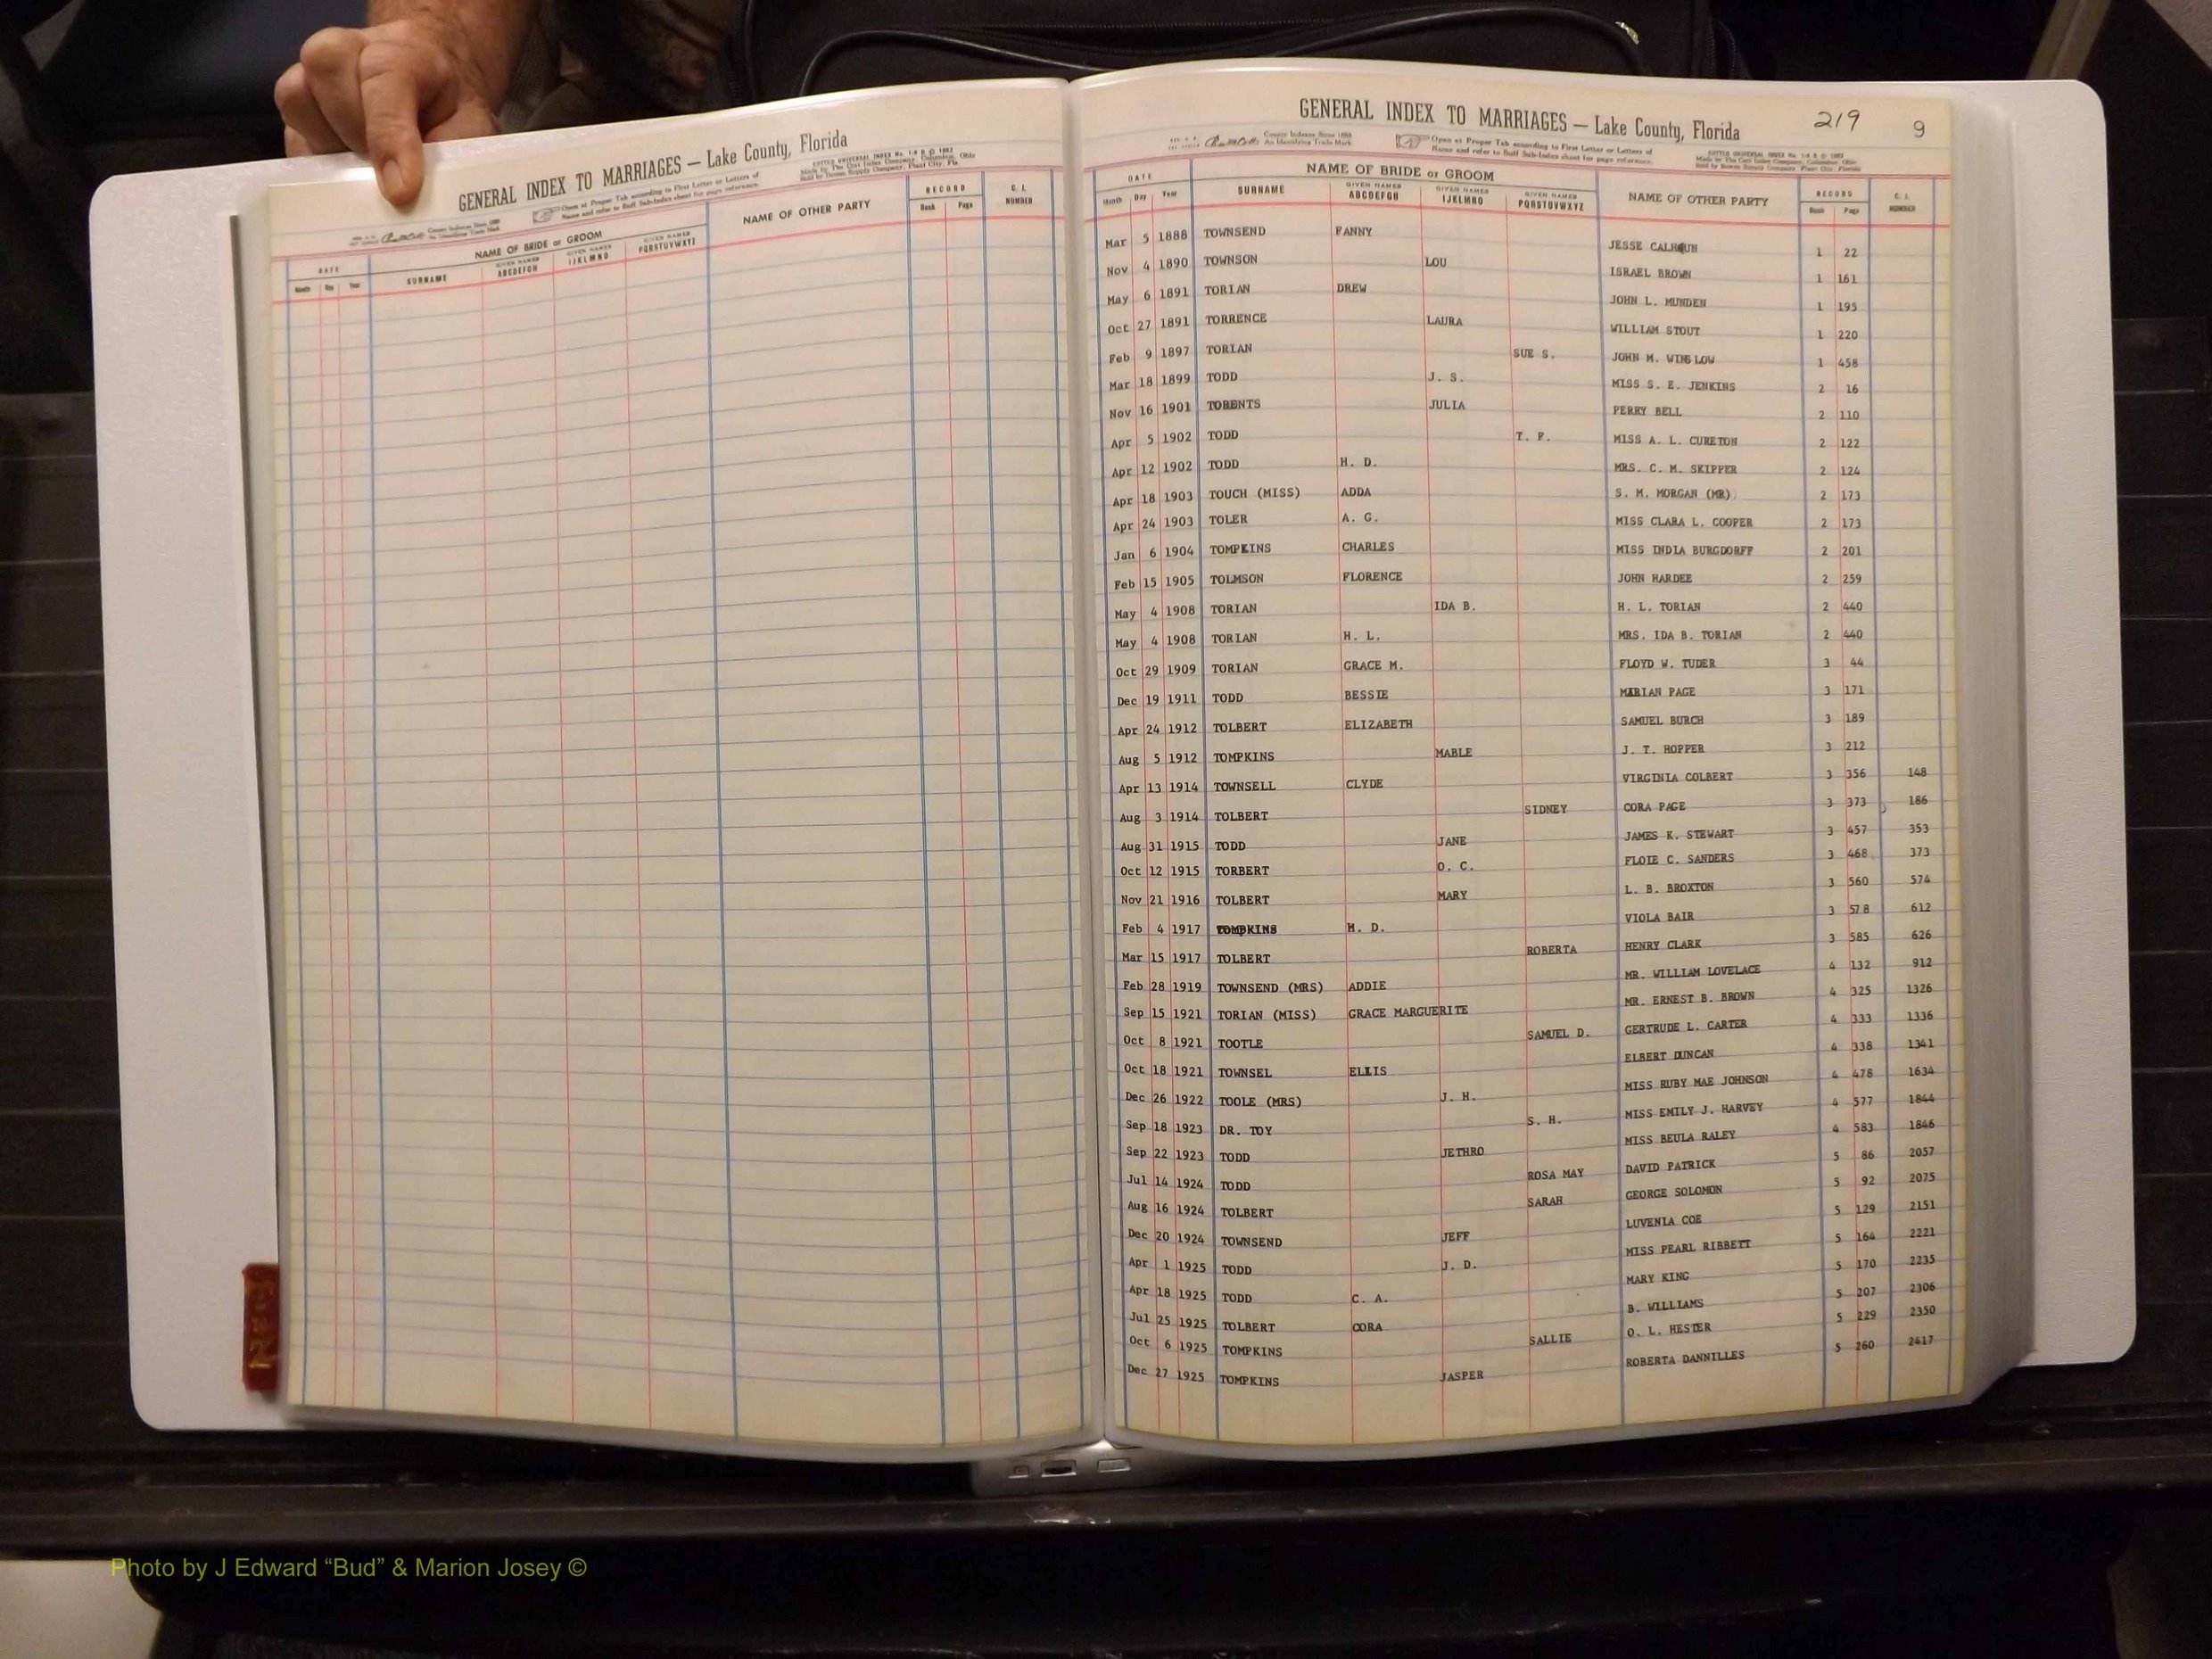 GENERAL INDEX TO MARRIAGES — Lake County, Florida
Open at Proper Tab according to First Letter or Letters of
Name and refer to Buff Sub-Index sheet for page reference.
DATE NAME OF BRIDE or GROOM NAME OF OTHER PARTY RECORD C. L. NUMBER
Month Day Year SURNAME GIVEN NAMES ABCDEFGH GIVEN NAMES IJKLMNO GIVEN NAMES PQRSTUVWXYZ Book Page
GENERAL INDEX TO MARRIAGES — Lake County, Florida 219 9
County Indexes Since 1888
An Identifying Trade Mark
Open at Proper Tab according to First Letter or Letters of
Name and refer to Buff Sub-Index sheet for page reference.
DATE NAME OF BRIDE or GROOM NAME OF OTHER PARTY RECORD C. L. NUMBER
Month Day Year SURNAME GIVEN NAMES ABCDEFGH GIVEN NAMES IJKLMNO GIVEN NAMES PQRSTUVWXYZ Book Page
Mar 5 1888 TOWNSEND FANNY JESSE CALHOUN 1 22
Nov 4 1890 TOWNSON LOU ISRAEL BROWN 1 161
May 6 1891 TORIAN DREW JOHN L. MUNDEN 1 195
Oct 27 1891 TORRENCE LAURA WILLIAM STOUT 1 220
Feb 9 1897 TORIAN SUE S. JOHN M. WINSLOW 1 458
Mar 18 1899 TODD J. S. MISS S. E. JENKINS 2 16
Nov 16 1901 TORENTS JULIA PERRY BELL 2 110
Apr 5 1902 TODD T. F. MISS A. L. CURETON 2 122
Apr 12 1902 TODD H. D. MRS. C. M. SKIPPER 2 124
Apr 18 1903 TOUCH (MISS) ADDA S. M. MORGAN (MR) 2 173
Apr 24 1903 TOLER A. G. MISS CLARA L. COOPER 2 173
Jan 6 1904 TOMPKINS CHARLES MISS INDIA BURGDORFF 2 201
Feb 15 1905 TOLMSON FLORENCE JOHN HARDEE 2 259
May 4 1908 TORIAN IDA B. H. L. TORIAN 2 440
May 4 1908 TORIAN H. L. MRS. IDA B. TORIAN 2 440
Oct 29 1909 TORIAN GRACE M. FLOYD W. TUDER 3 44
Dec 19 1911 TODD BESSIE MARIAN PAGE 3 171
Apr 24 1912 TOLBERT ELIZABETH SAMUEL BURCH 3 189
Aug 5 1912 TOMPKINS MABLE J. T. HOPPER 3 212
Apr 13 1914 TOWNSELL CLYDE VIRGINIA COLBERT 3 356 148
Aug 3 1914 TOLBERT SIDNEY CORA PAGE 3 373 186
Aug 31 1915 TODD JANE JAMES K. STEWART 3 457 353
Oct 12 1915 TORBERT O. C. FLOIE C. SANDERS 3 468 373
Nov 21 1916 TOLBERT MARY L. B. BROXTON 3 560 574
Feb 4 1917 TOMPKINS H. D. VIOLA BAIR 3 578 612
Mar 15 1917 TOLBERT ROBERTA HENRY CLARK 3 585 626
Feb 28 1919 TOWNSEND (MRS) ADDIE MR. WILLIAM LOVELACE 4 132 912
Sep 15 1921 TORIAN (MISS) GRACE MARGUERITE MR. ERNEST B. BROWN 4 325 1326
Oct 8 1921 TOOTLE SAMUEL D. GERTRUDE L. CARTER 4 333 1336
Oct 18 1921 TOWNSEL ELLIS ELBERT DUNCAN 4 338 1341
Dec 26 1922 TOOLE (MRS) J. H. MISS RUBY MAE JOHNSON 4 478 1634
Sep 18 1923 DR. TOY S. H. MISS EMILY J. HARVEY 4 577 1844
Sep 22 1923 TODD JETHRO MISS BEULA RALEY 4 583 1846
Jul 14 1924 TODD ROSA MAY DAVID PATRICK 5 86 2057
Aug 16 1924 TOLBERT SARAH GEORGE SOLOMON 5 92 2075
Dec 20 1924 TOWNSEND JEFF LUVENIA COE 5 129 2151
Apr 1 1925 TODD J. D. MISS PEARL RIBBETT 5 164 2221
Apr 18 1925 TODD C. A. MARY KING 5 170 2235
Jul 25 1925 TOLBERT CORA B. WILLIAMS 5 207 2306
Oct 6 1925 TOMPKINS SALLIE O. L. HESTER 5 229 2350
Dec 27 1925 TOMPKINS JASPER ROBERTA DANNILLES 5 260 2417
Photo by J Edward “Bud” & Marion Josey ©